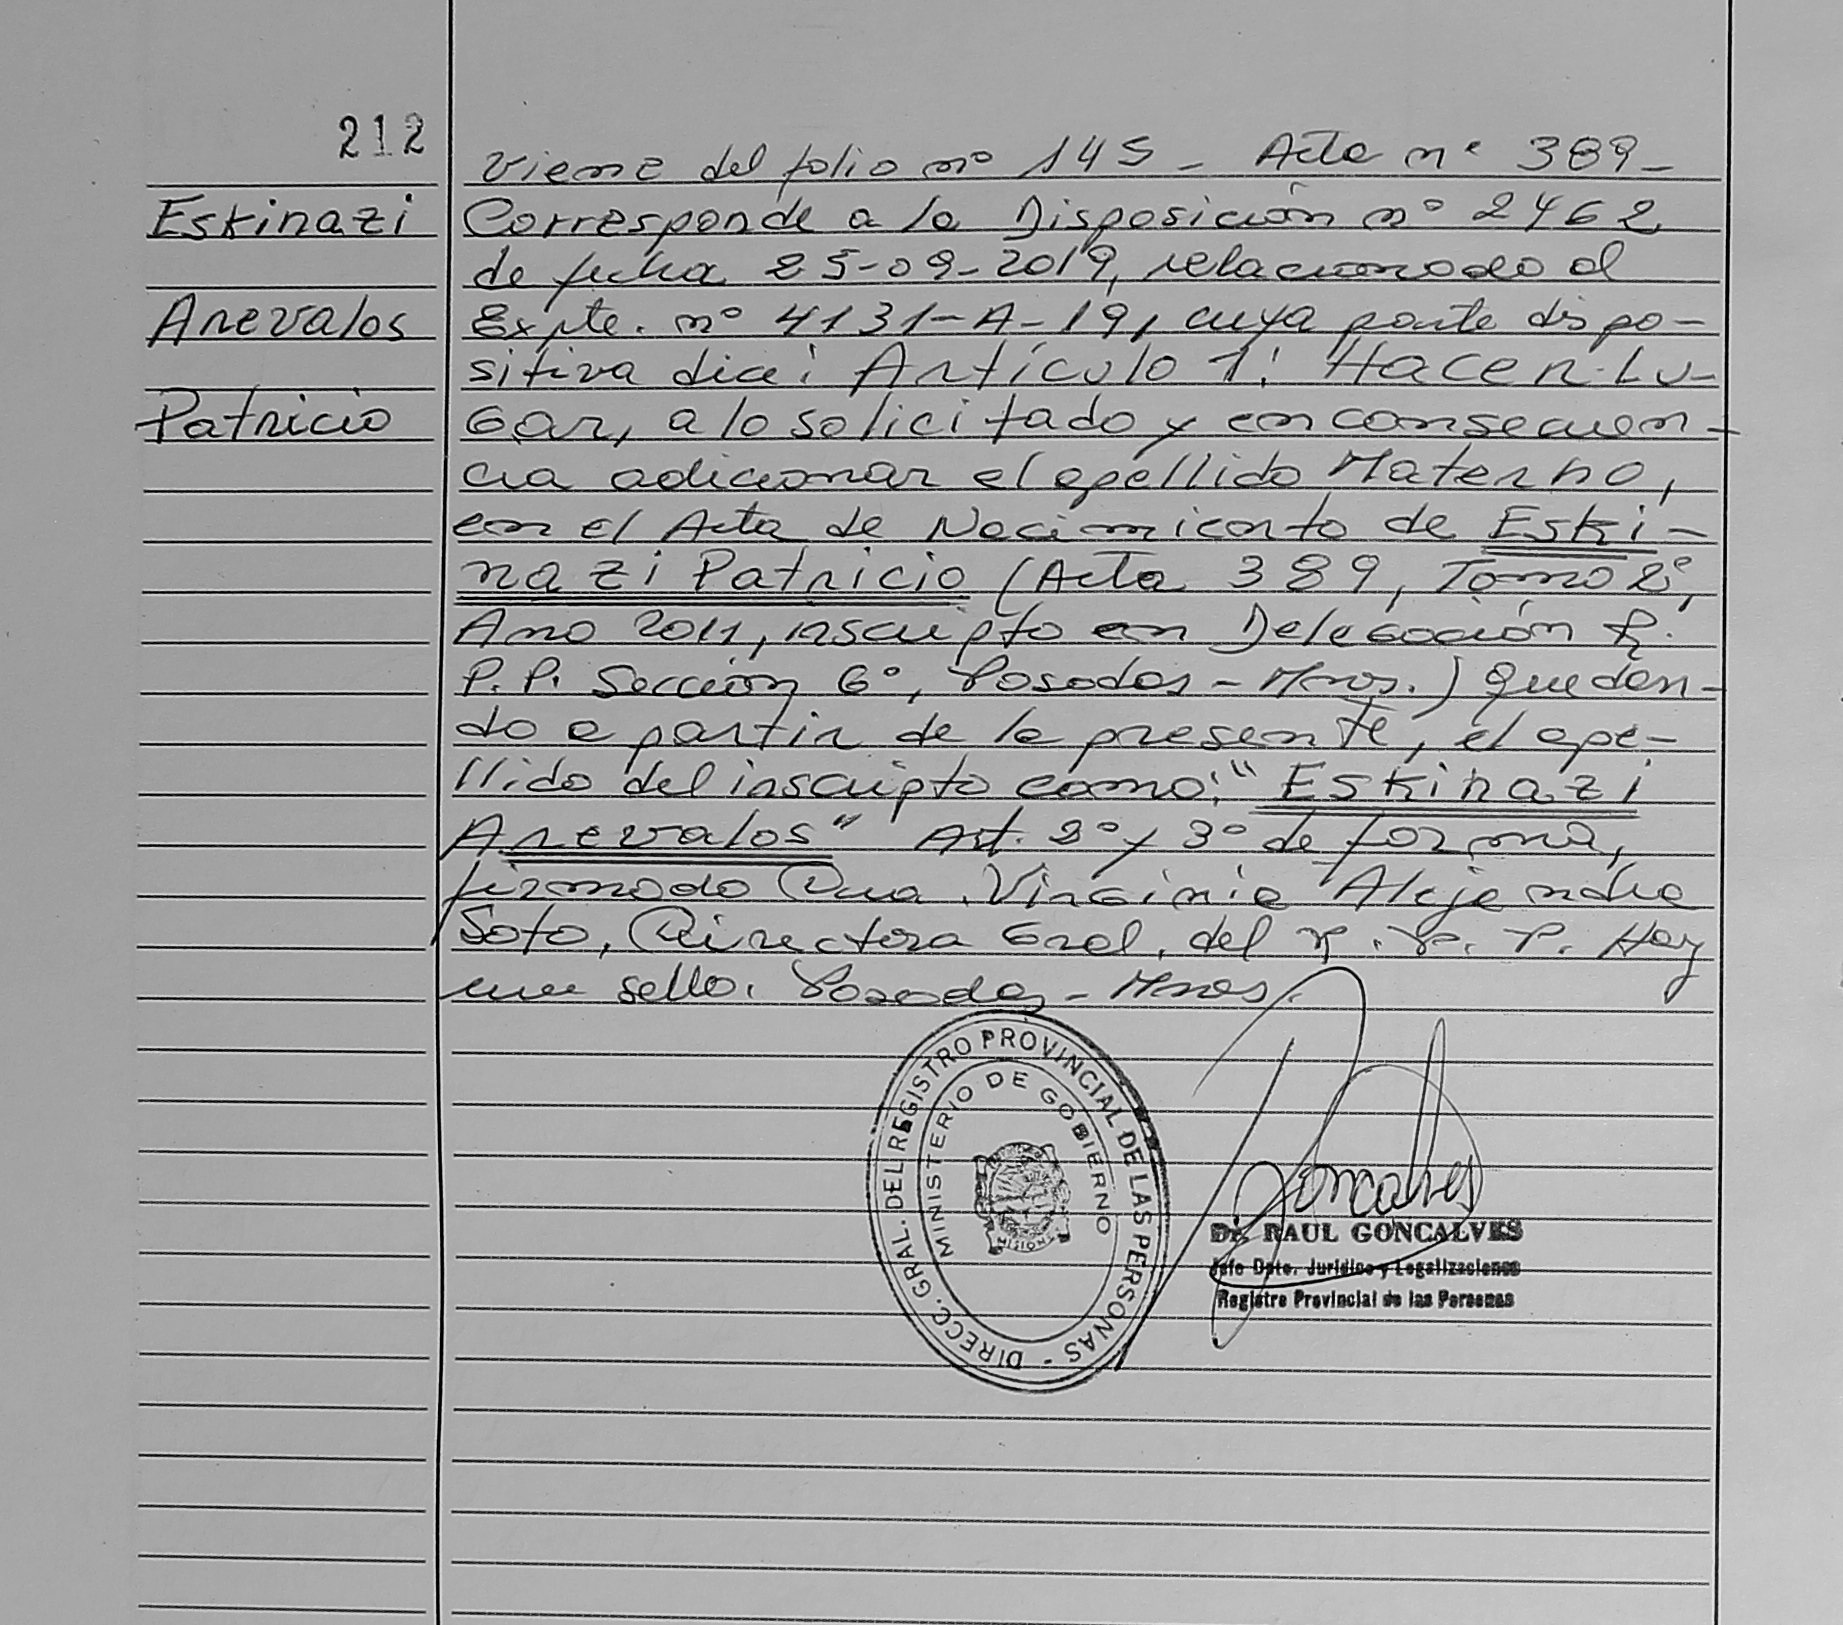 212
Viene del folio nº 145 - Acta nº 389 -
Eskinazi
Corresponde a la Disposición nº 2462
de fecha 25-09-2019, relacionado al
Arevalos
Expte. nº 4131-A-19, cuya parte dispo-
sitiva dice: Artículo 1: Hacer Lu-
Patricio
Gar, a lo solicitado y en consecuen-
cia adicionar el apellido Materno,
en el Acta de Nacimiento de Eski-
nazi Patricio (Acta 389, Tomo 2º,
Año 2011, inscripto en Delegación R.
P.P. Sección 6º, Posadas - Mnes.) quedan-
do a partir de la presente, el ape-
llido del inscripto como: "Eskinazi
Arevalos" Art. 2º y 3º de forma,
firmado Dra. Virginia Alejandra
Soto, Directora Gral. del R. P. P. Hay
un sello. Posadas - Mnes.
DIRECC. GRAL. DEL REGISTRO PROVINCIAL DE LAS PERSONAS -
MINISTERIO DE GOBIERNO
MISIONES
Goncalves
Dr. RAUL GONCALVES
Jefe Dpto. Jurídico y Legalizaciones
Registro Provincial de las Personas